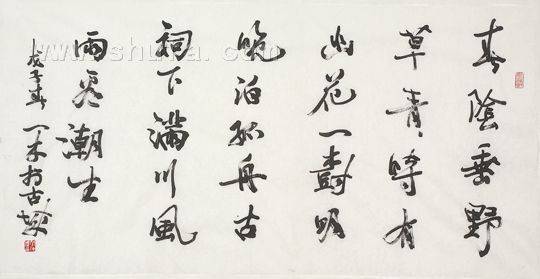 春陰垂野
草青青時有
幽花一樹明
晚泊孤舟古
祠下滿川風
雨看潮生
戊子春一木於古